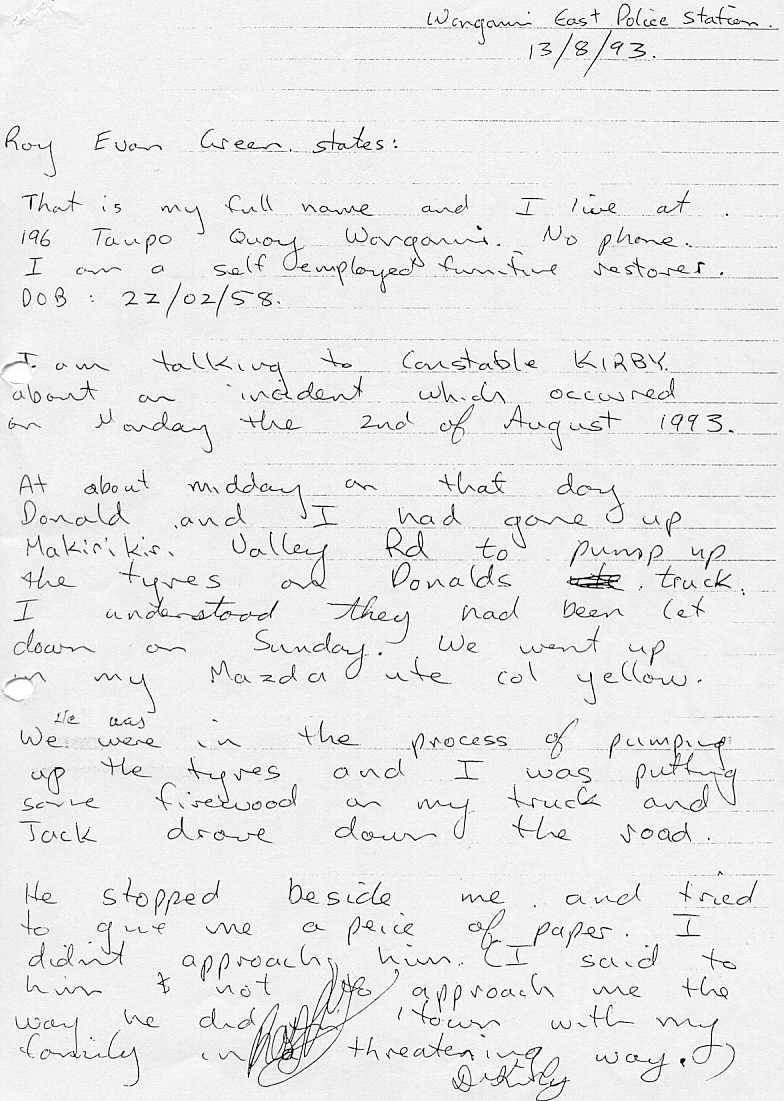 Wanganui East Police Station.
13/8/93.
Roy Evan Green. states:
That is my full name and I live at
196 Taupo Quay Wanganui. No phone.
I am a self employed furniture restorer.
DOB : 22/02/58.
I am talking to Constable KIRBY.
about an incident which occured
on Monday the 2nd of August 1993.
At about midday on that day
Donald and I had gone up
Makirikiri Valley Rd to pump up
the tyres on Donalds truck.
I understood they had been let
down on Sunday. We went up
in my Mazda ute col yellow.
He was
We were in the process of pumping
up the tyres and I was putting
some firewood on my truck and
Jack drove down the road.
He stopped beside me. and tried
to give me a peice of paper. I
didnt approach him. (I said to
him not to approach me the
way he did town with my
family in a threatening way.)
DKirby